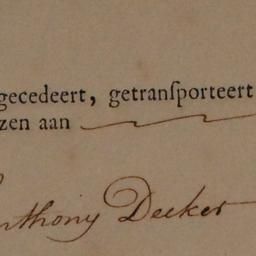 gecedeert, getranſporteert
zen aan
Anthony Decker